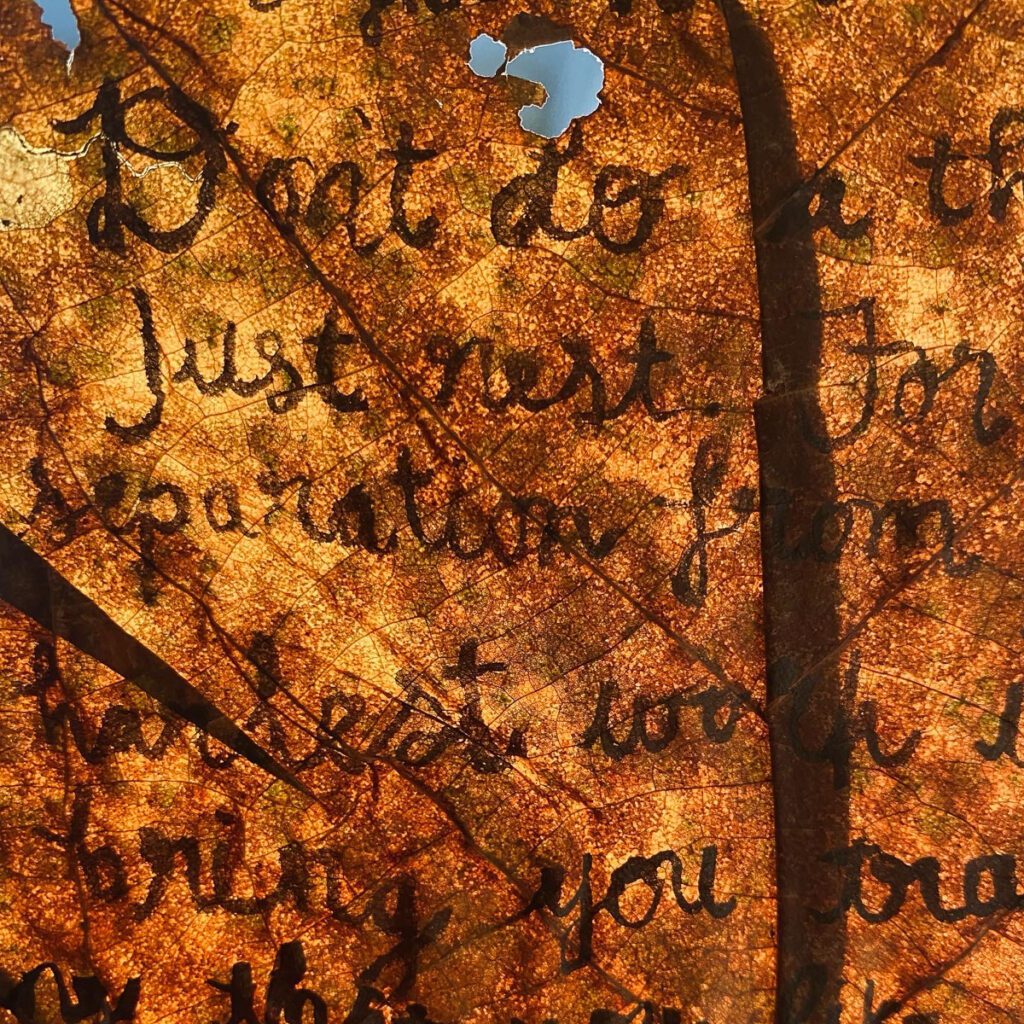 Don't do a th
Just rest. For
separation from
hardest work
bring you tra